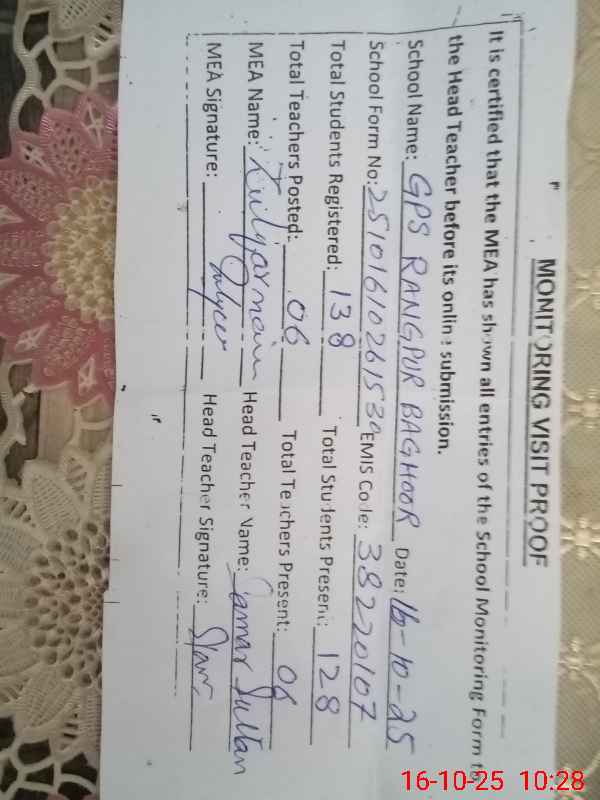 MONITORING VISIT PROOF
It is certified that the MEA has shown all entries of the School Monitoring Form to
the Head Teacher before its online submission.
School Name: GPS RANGPUR BAGHOOR Date: 16-10-25
School Form No: 25101610261530 EMIS Code: 38220107
Total Students Registered: 138 Total Students Present: 128
Total Teachers Posted: 06 Total Teachers Present: 06
MEA Name: Head Teacher Name: Samar Sultan
MEA Signature: Head Teacher Signature:
16-10-25 10:28